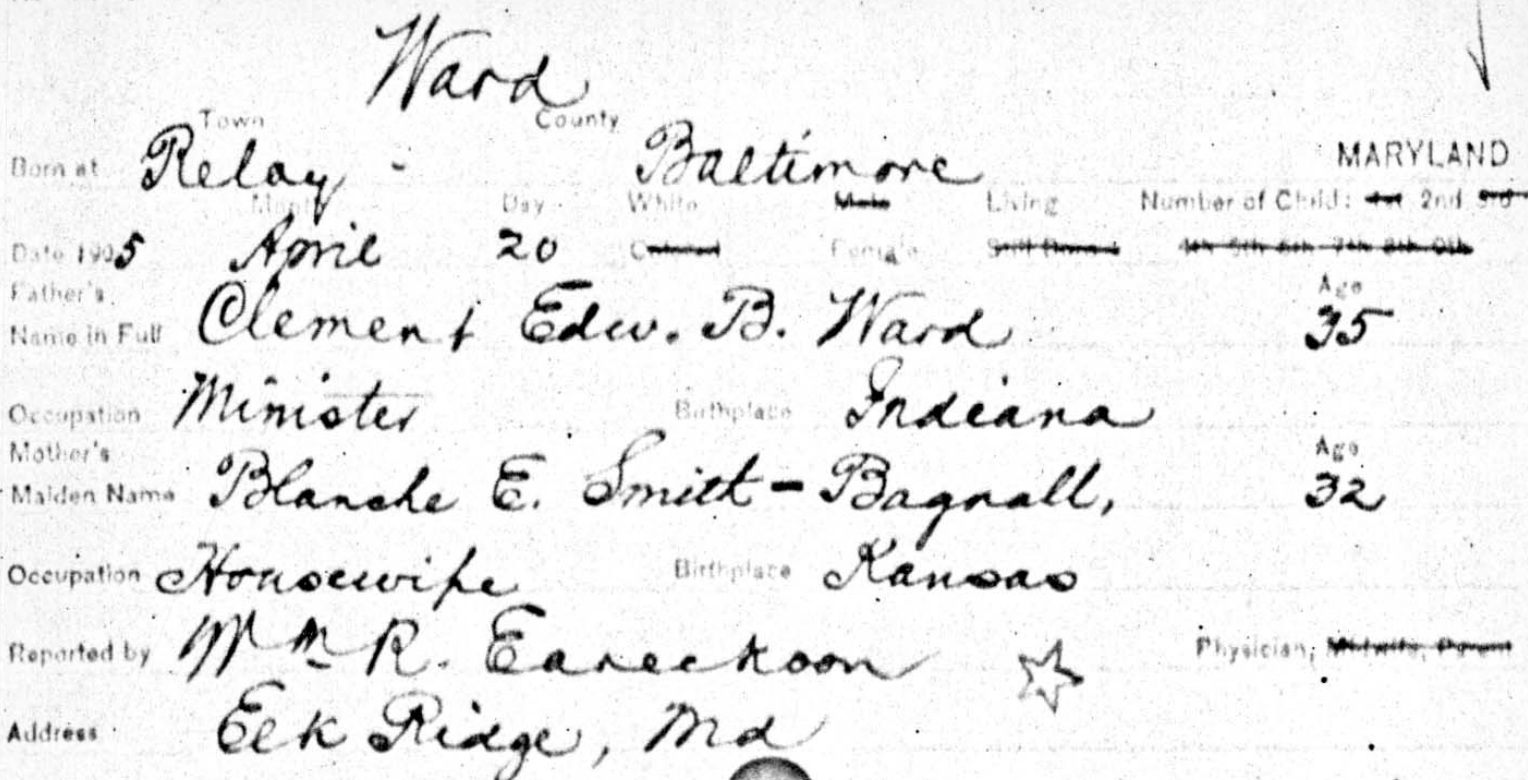 Ward
Town County
Born at Relay - Baltimore MARYLAND
Month Day White Male Living Number of Child: 1st 2nd 3rd
Date 1905 April 20 Colored Female Still Born 4th 5th 6th 7th 8th 9th
Father's Age
Name in Full Clement Edw. B. Ward 35
Occupation Minister Birthplace Indiana
Mother's Age
Maiden Name Blanche E. Smith - Bagnall, 32
Occupation Housewife Birthplace Kansas
Reported by Wm R. Eareckson Physician, Midwife, Parent
Address Elk Ridge, Md